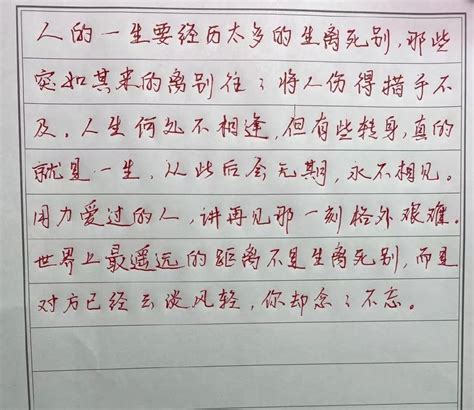 人的一生要经历太多的生离死别，那些
突如其来的离别往々将人伤得措手不
及。人生何处不相逢，但有些转身，真的
就是一生，从此后会无期，永不相见。
用力爱过的人，讲再见那一刻格外艰难。
世界上最遥远的距离不是生离死别，而是
对方已经云淡风轻，你却念々不忘。